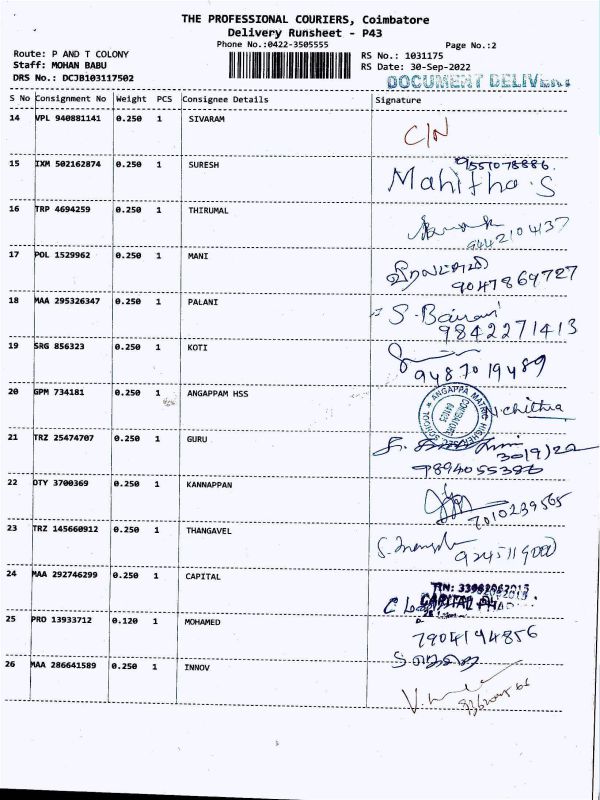 THE PROFESSIONAL COURIERS, Coimbatore
Delivery Runsheet - P43
Phone No.:0422-3505555
Page No.:2
Route: P AND T COLONY
RS No.: 1031175
Staff: MOHAN BABU
RS Date: 30-Sep-2022
DRS No.: DCJB103117502
DOCUMENT DELIVERY
S No Consignment No Weight PCS Consignee Details Signature
14 VPL 940881141 0.250 1 SIVARAM C/N
15 IXM 502162874 0.250 1 SURESH 9551078886
Mahitha S
16 TRP 4694259 0.250 1 THIRUMAL
9442210437
17 POL 1529962 0.250 1 MANI
9047869727
18 MAA 295326347 0.250 1 PALANI S. Bairavi
9842271413
19 SRG 856323 0.250 1 KOTI
9487019489
20 GPM 734181 0.250 1 ANGAPPAM HSS N. Chithra
ANGAPPA MATRIC HIGHER SEC SCHOOL
COIMBATORE
21 TRZ 25474707 0.250 1 GURU
30/9/22
9894055386
22 DTY 3700369 0.250 1 KANNAPPAN
7010239565
23 TRZ 145660912 0.250 1 THANGAVEL
24 MAA 292746299 0.250 1 CAPITAL
CAPITAL
25 PRO 13933712 0.120 1 MOHAMED 7904194856
26 MAA 286641589 0.250 1 INNOV